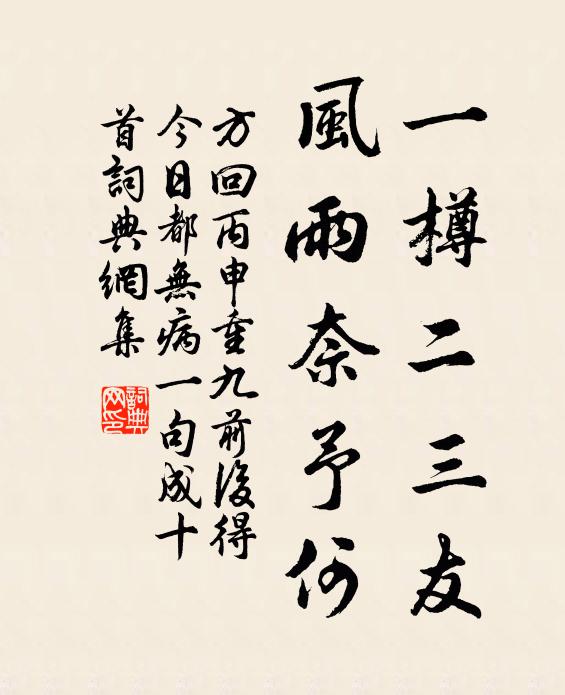 一樽二三友
風雨奈予何
方回丙申重九前後得
今日都無病一句成十
首詞典網集
詞典
网印